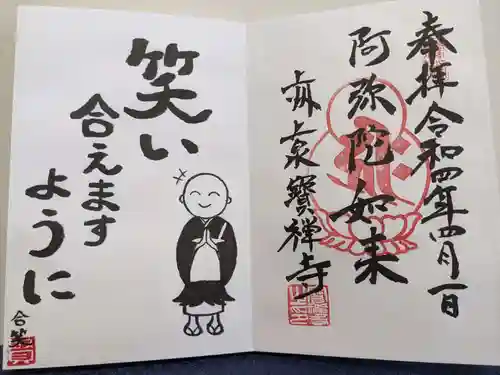 奉拝 令和四年四月一日
阿弥陀如来
寶禅寺
笑い
合えます
ように
合笑